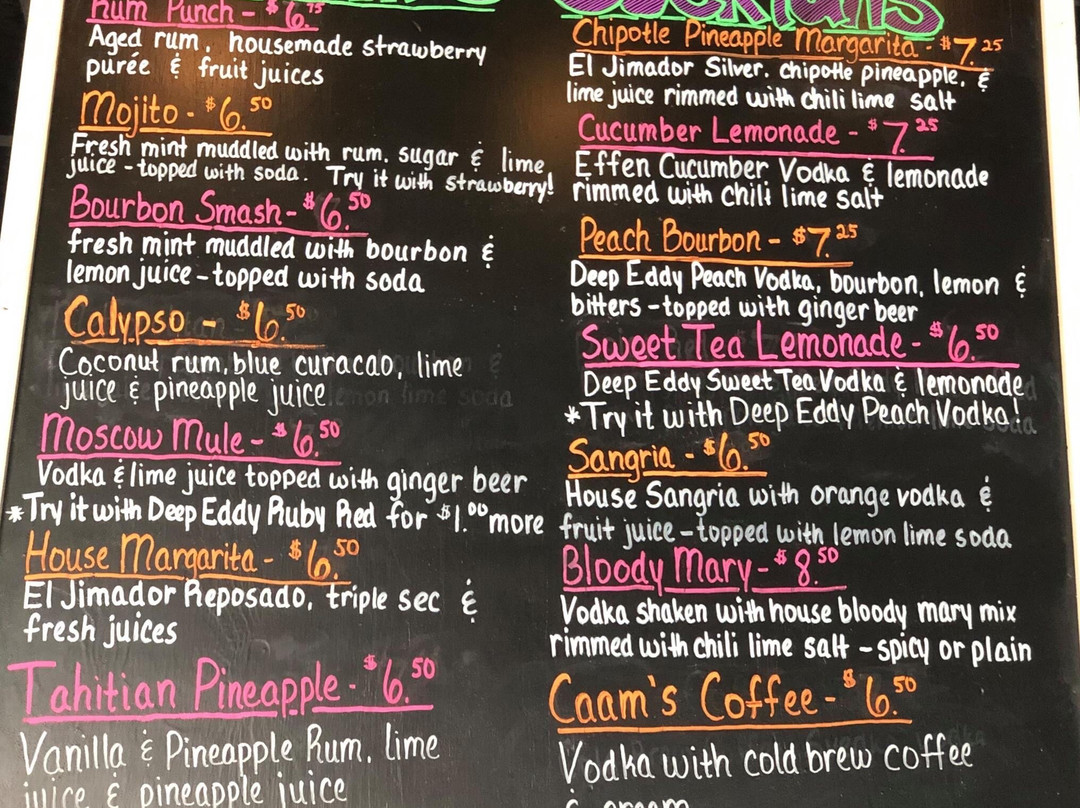 Cocktails
Rum Punch - $6.75
Aged rum, housemade strawberry
purée & fruit juices
Mojito - $6.50
Fresh mint muddled with rum, sugar & lime
juice - topped with soda. Try it with strawberry!
Bourbon Smash - $6.50
fresh mint muddled with bourbon &
lemon juice - topped with soda
Calypso - $6.50
Coconut rum, blue curacao, lime
juice & pineapple juice
Moscow Mule - $6.50
Vodka & lime juice topped with ginger beer
*Try it with Deep Eddy Ruby Red for $1.00 more
House Margarita - $6.50
El Jimador Reposado, triple sec &
fresh juices
Tahitian Pineapple - $6.50
Vanilla & Pineapple Rum, lime
juice & pineapple juice
Chipotle Pineapple Margarita - $7.25
El Jimador Silver, chipotle pineapple, &
lime juice rimmed with chili lime salt
Cucumber Lemonade - $7.25
Effen Cucumber Vodka & lemonade
rimmed with chili lime salt
Peach Bourbon - $7.25
Deep Eddy Peach Vodka, bourbon, lemon &
bitters - topped with ginger beer
Sweet Tea Lemonade - $6.50
Deep Eddy Sweet Tea Vodka & lemonade
*Try it with Deep Eddy Peach Vodka!
Sangria - $6.50
House Sangria with orange vodka &
fruit juice - topped with lemon lime soda
Bloody Mary - $8.50
Vodka shaken with house bloody mary mix
rimmed with chili lime salt - spicy or plain
Caam's Coffee - $6.50
Vodka with cold brew coffee
& cream